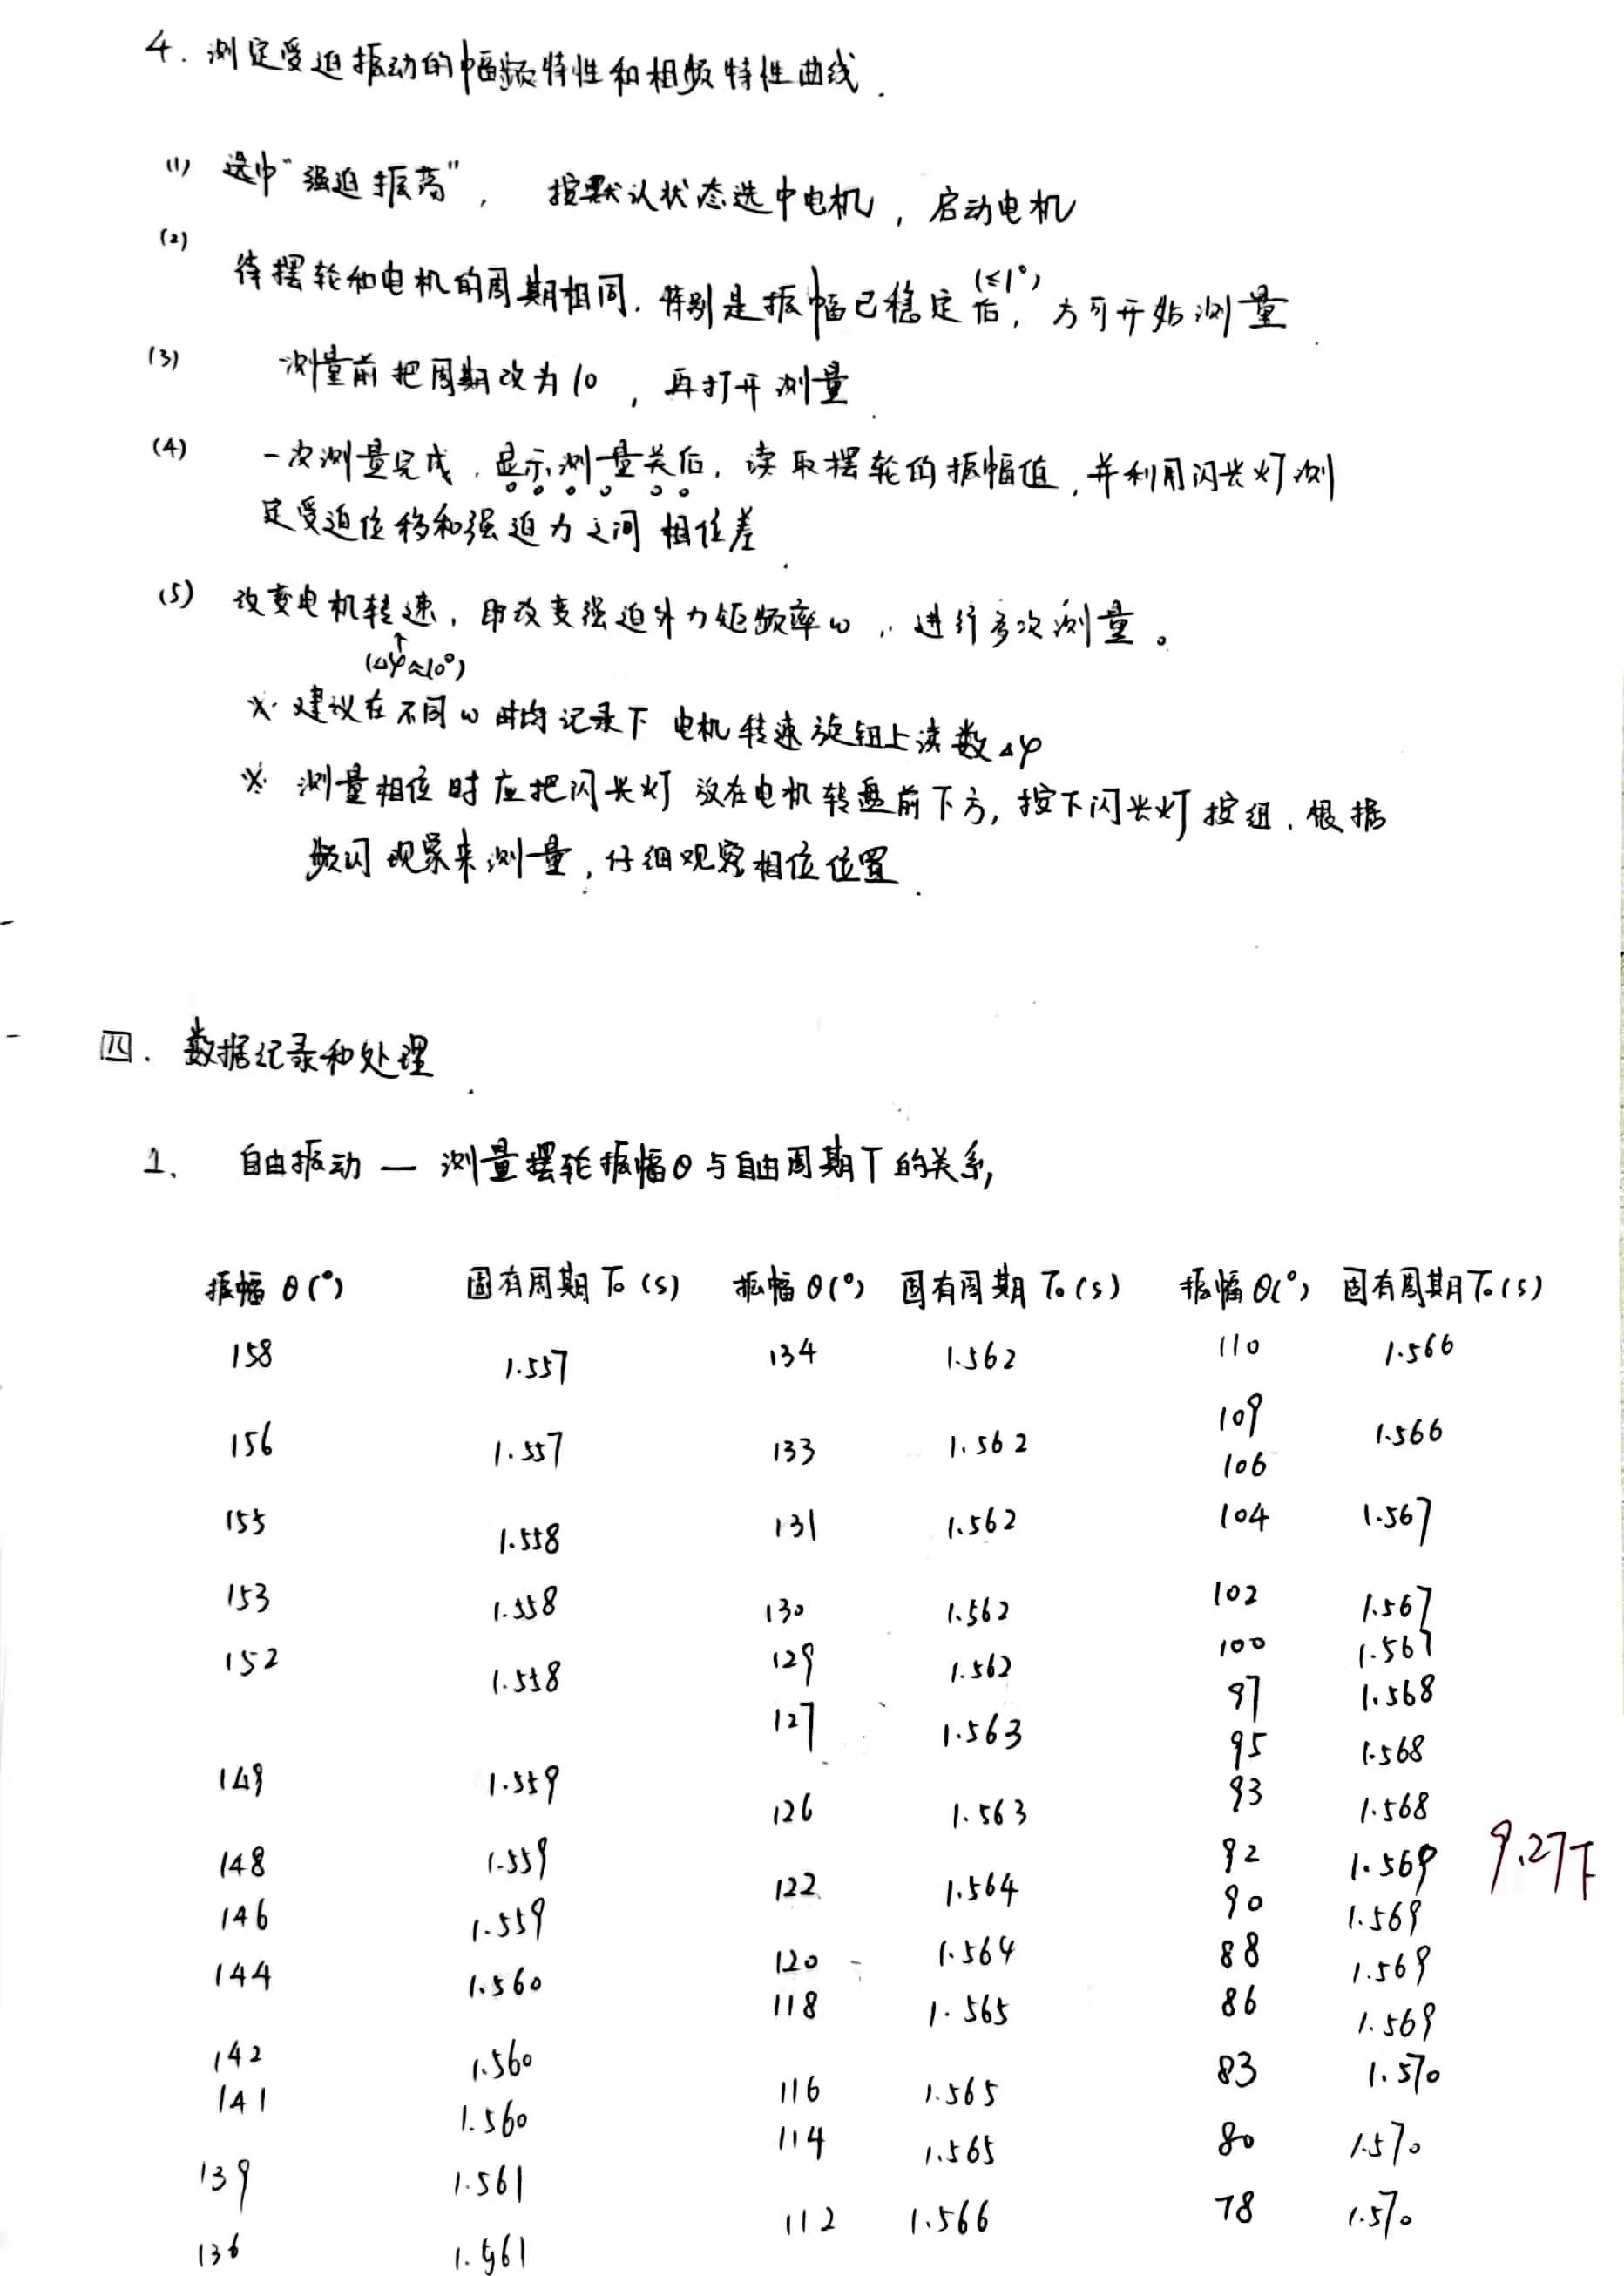 4. 测定受迫振动的幅频特性和相频特性曲线.
(1) 选中“强迫振荡”, 按默认状态选中电机, 启动电机
(2) 待摆轮和电机的周期相同, 特别是振幅已稳定后(≤1°), 方可开始测量.
(3) 测量前把周期改为10, 再打开测量.
(4) 一次测量完成, 显示测量关后, 读取摆轮的振幅值, 并利用闪光灯测
定受迫位移和强迫力之间相位差.
(5) 改变电机转速, 即改变强迫外力矩频率ω, 进行多次测量。
↑
(△φ≈10°)
※ 建议在不同ω时均记录下电机转速旋钮上读数△φ
※ 测量相位时应把闪光灯放在电机转盘前下方, 按下闪光灯按纽, 根据
频闪现象来测量, 仔细观察相位位置.
四. 数据纪录和处理.
1. 自由振动 — 测量摆轮振幅θ与自由周期T的关系,
振幅θ(°) 固有周期T₀(s) 振幅θ(°) 固有周期T₀(s) 振幅θ(°) 固有周期T₀(s)
158 1.557 134 1.562 110 1.566
109
156 1.557 133 1.562 1.566
106
155 1.558 131 1.562 104 1.567
153 1.558 130 1.562 102 1.567
152 1.558 129 1.562 100 1.567
127 1.563 97 1.568
95 1.568
149 1.559 126 1.563 93 1.568
148 1.559 122 1.564 92 1.569 9.27下
146 1.559 90 1.569
144 1.560 120 1.564 88 1.569
118 1.565 86 1.569
142 1.560 116 1.565 83 1.570
141 1.560 114 1.565 80 1.570
139 1.561 112 1.566 78 1.570
136 1.561